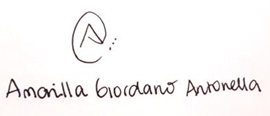 A...
Amarilla Giordano Antonella